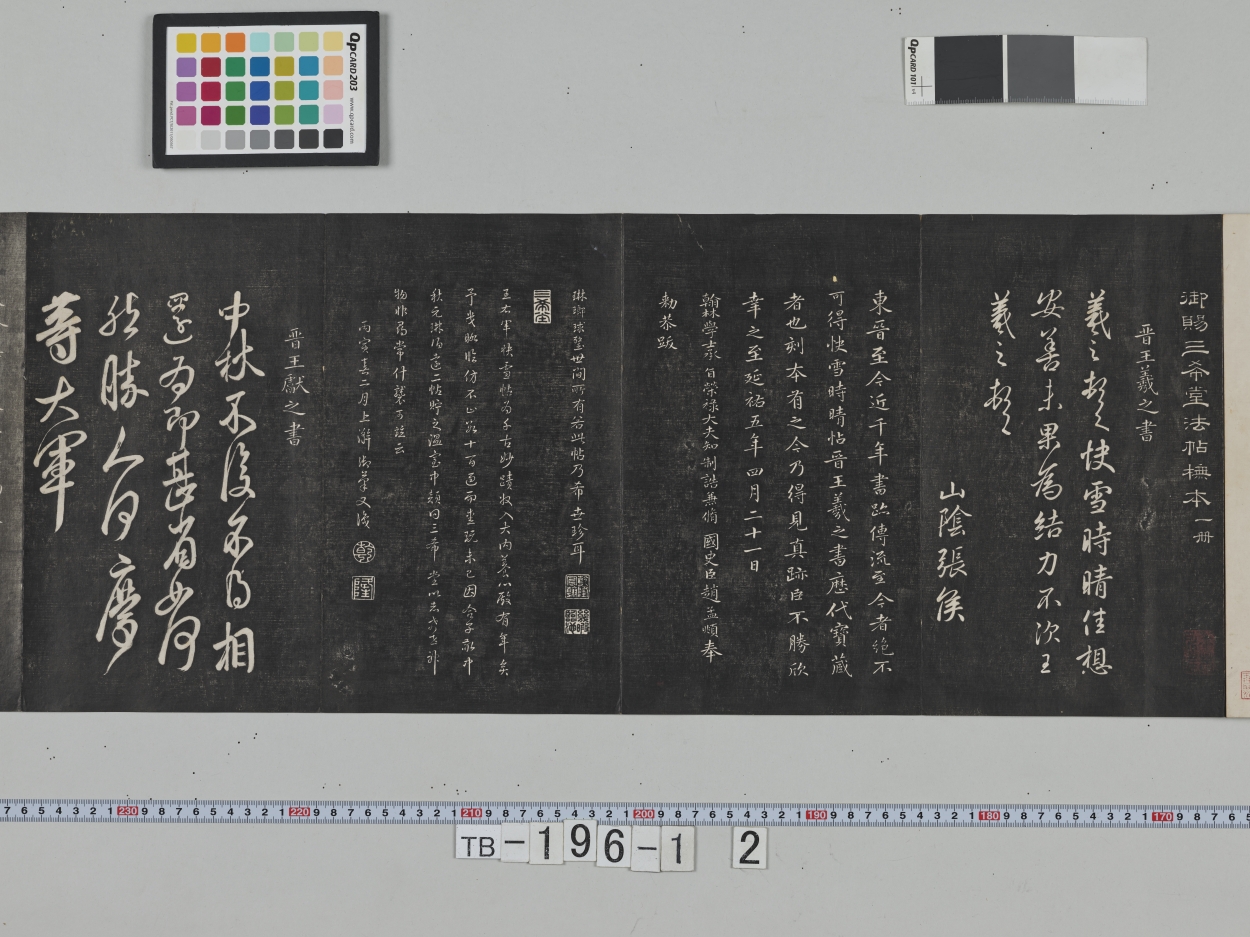 御賜三希堂法帖橅本 一册
晋王羲之書
羲之頓首快雪時晴佳想
安善未果為結力不次王
羲之頓首
山陰張侯
東晉至今近千年書跡傳流至今者絶不
可得快雪時晴帖晉王羲之書歷代寶藏
者也刻本有之今乃得見真跡臣不勝欣
幸之至延祐五年四月二十一日
翰林學士承旨榮祿大夫知制誥兼脩國史臣趙孟頫奉
勑恭跋
琳瑯球璧世間所有若此帖乃希世珍耳
三希堂
王右軍快雪帖為千古妙蹟收入大內養心殿有年矣
予幾暇臨仿不止數十百過而愛玩未已因合子敬中
秋元珣伯遠二帖貯之溫室中顏曰三希堂以志
物非尋常什襲可並云
丙寅春二月上澣御筆又識
乾
隆
晋王獻之書
中秋不復不得相
還為即甚省如何
然勝人何慶
等大軍
QpCARD 203
www.qpcard.com
QpCARD 101
TB-196-1 2
230 220 210 200 190 180 170